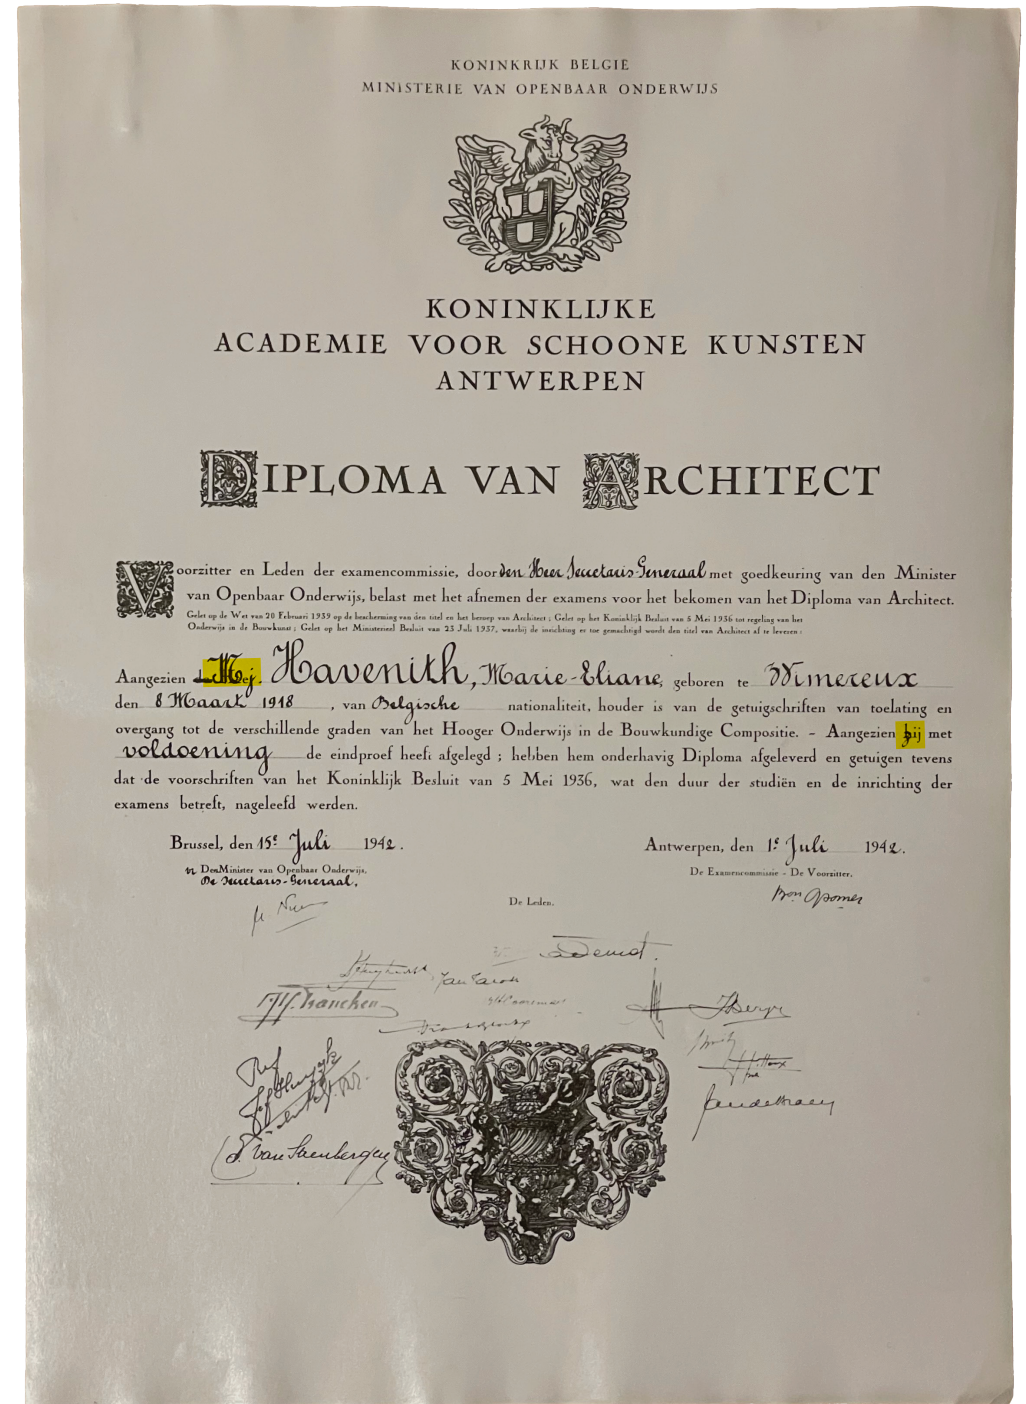 KONINKRIJK BELGIË
MINISTERIE VAN OPENBAAR ONDERWIJS
KONINKLIJKE
ACADEMIE VOOR SCHOONE KUNSTEN
ANTWERPEN
DIPLOMA VAN ARCHITECT
Voorzitter en Leden der examencommissie, door den Heer Secretaris-Generaal met goedkeuring van den Minister
van Openbaar Onderwijs, belast met het afnemen der examens voor het bekomen van het Diploma van Architect.
Gelet op de Wet van 20 Februari 1939 op de bescherming van den titel en het beroep van Architect ; Gelet op het Koninklijk Besluit van 5 Mei 1936 tot regeling van het
Onderwijs in de Bouwkunst ; Gelet op het Ministerieel Besluit van 23 Juli 1937, waarbij de inrichting er toe gemachtigd wordt den titel van Architect af te leveren :
Aangezien Mej. Havenith, Marie-Eliane, geboren te Wimereux
den 8 Maart 1918 , van Belgische nationaliteit, houder is van de getuigschriften van toelating en
overgang tot de verschillende graden van het Hooger Onderwijs in de Bouwkundige Compositie. - Aangezien zij met
voldoening de eindproef heeft afgelegd ; hebben hem onderhavig Diploma afgeleverd en getuigen tevens
dat de voorschriften van het Koninklijk Besluit van 5 Mei 1936, wat den duur der studiën en de inrichting der
examens betreft, nageleefd werden.
Brussel, den 15e Juli 1942.
Antwerpen, den 1e Juli 1942.
De Minister van Openbaar Onderwijs,
De Secretaris-Generaal,
De Examencommissie - De Voorzitter,
De Leden,
Bon Opsomer
Francken
J. Van Steenbergen